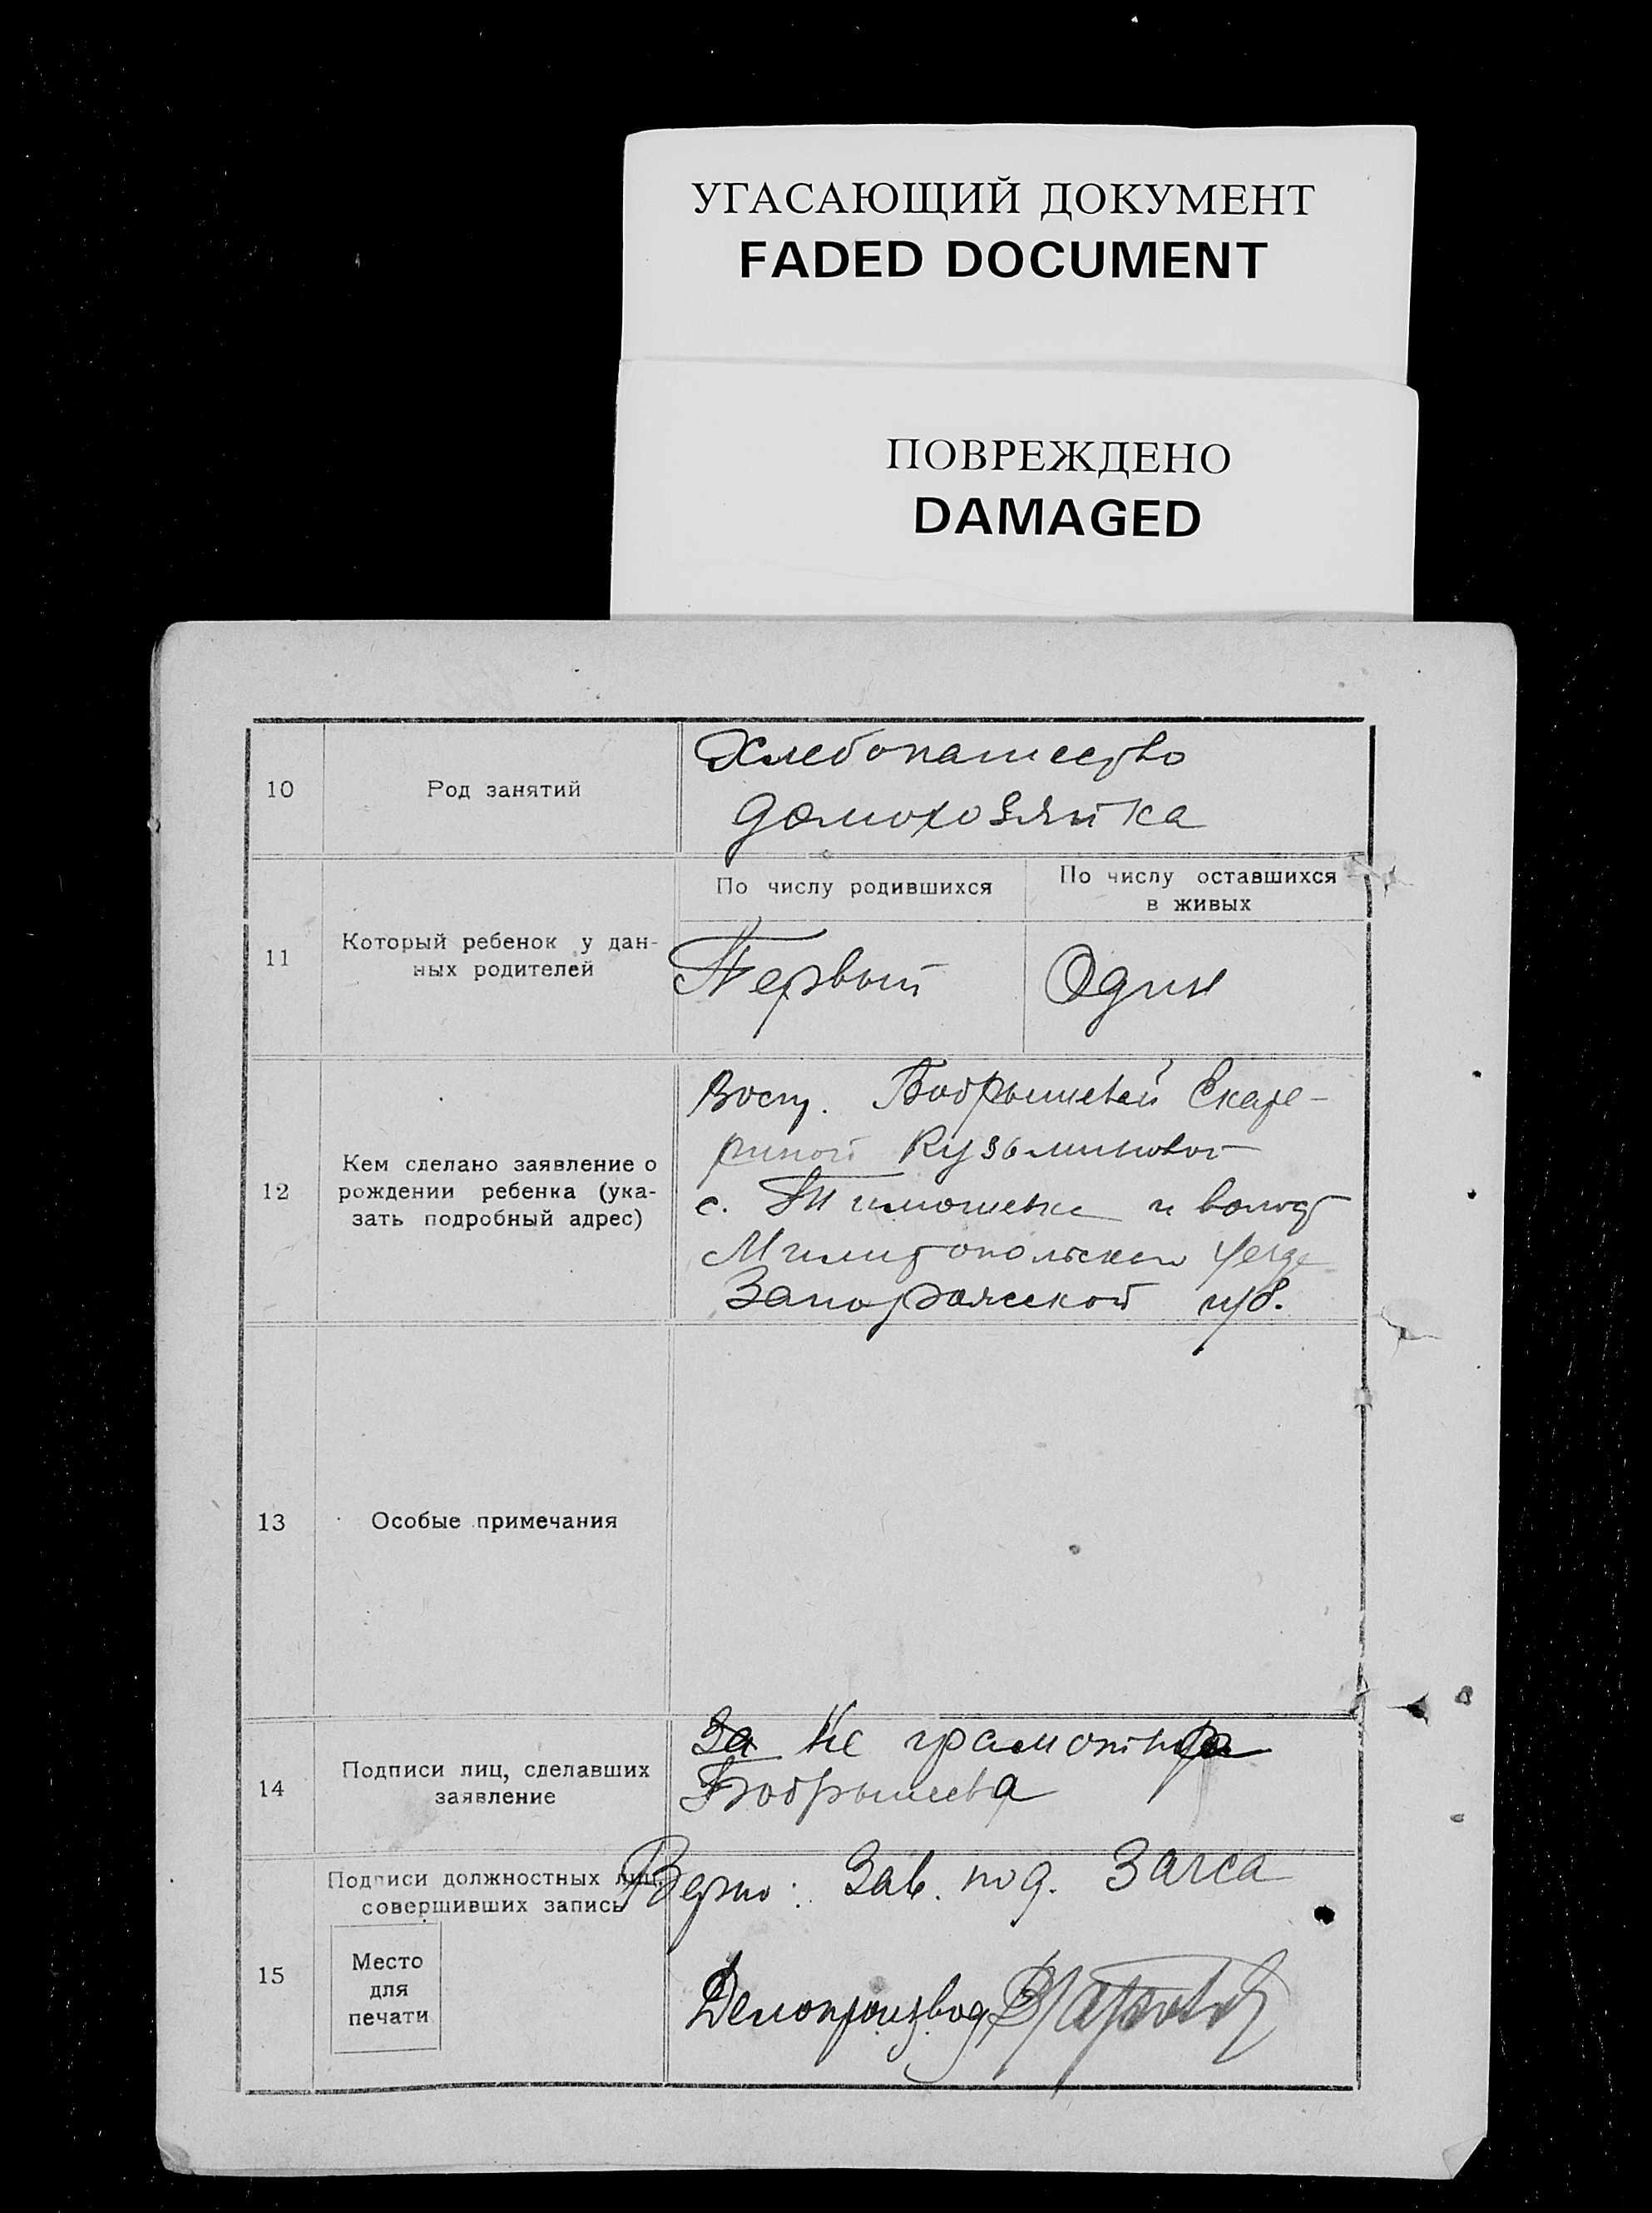 УГАСАЮЩИЙ ДОКУМЕНТ
FADED DOCUMENT
ПОВРЕЖДЕНО
DAMAGED
10
Род занятий
Хлебопашество
домохозяйка
11
Который ребенок у дан-
ных родителей
По числу родившихся
По числу оставшихся
в живых
Первый
Один
12
Кем сделано заявление о
рождении ребенка (ука-
зать подробный адрес)
Бобрышевой Екате-
риной Кузьминовой
с. Тимошевке и волост
Мелитопольского уезда
Запорожской губ.
13
Особые примечания
14
Подписи лиц, сделавших
заявление
За не грамотную
Бобрышева
15
Подписи должностных лиц,
совершивших запись
Место
для
печати
Верно: Зав. под. Загса
Делопроизвод